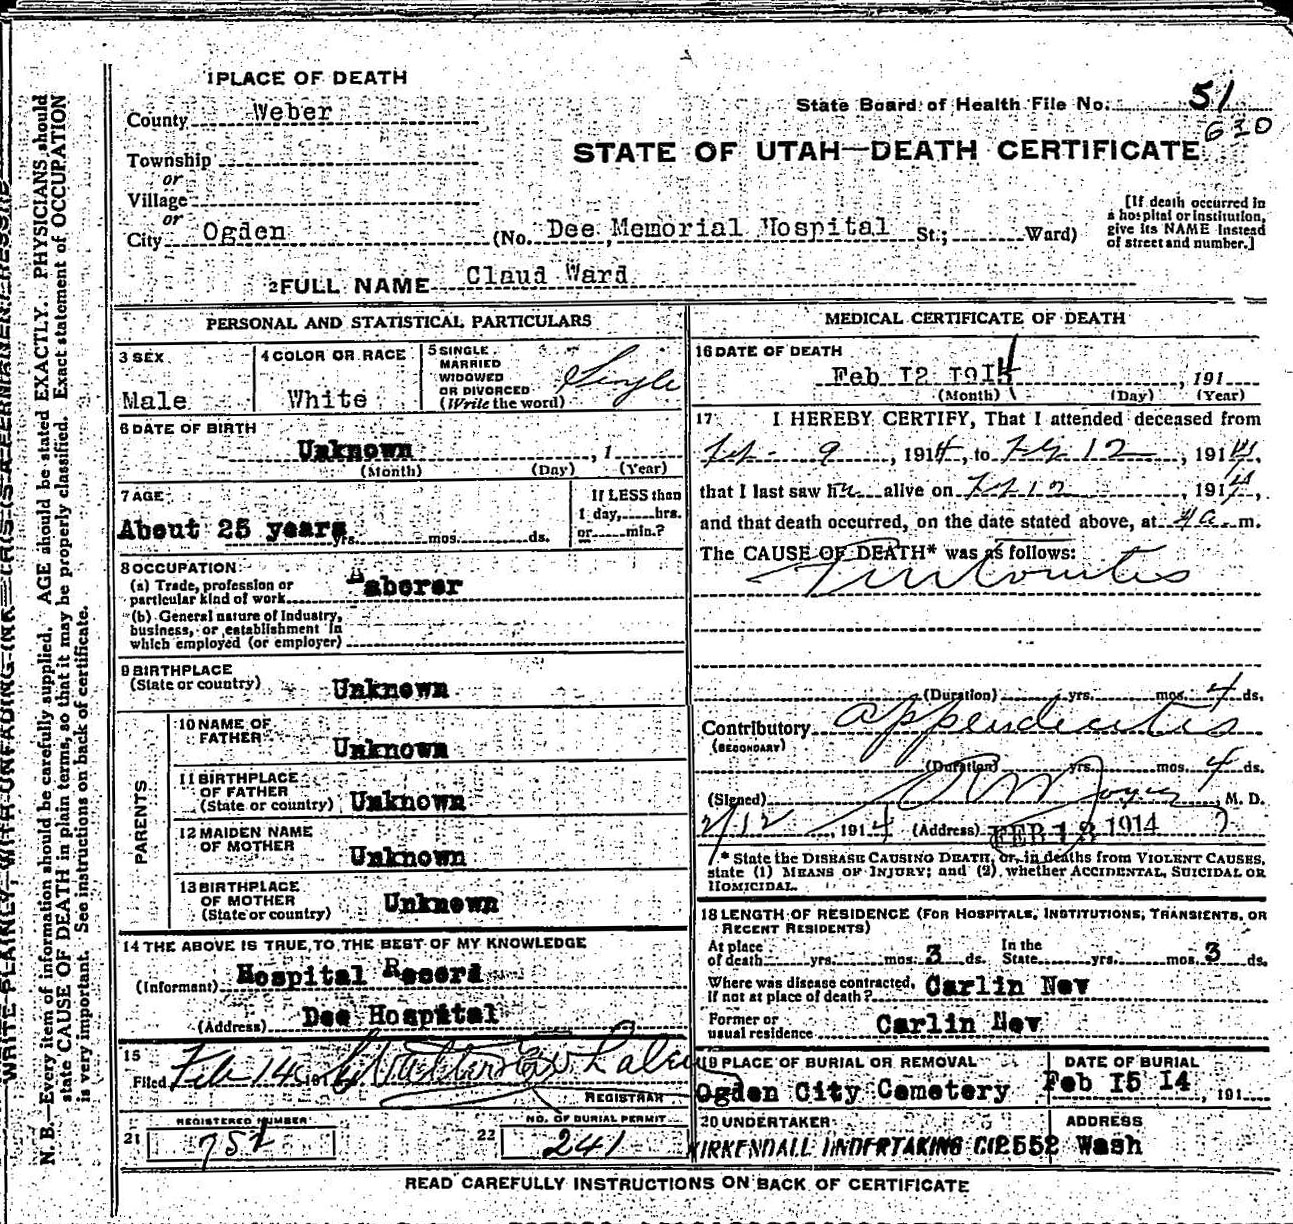 WRITE PLAINLY, WITH UNFADING INK—THIS IS A PERMANENT RECORD
N. B.—Every item of information should be carefully supplied. AGE should be stated EXACTLY. PHYSICIANS should
state CAUSE OF DEATH in plain terms, so that it may be properly classified. Exact statement of OCCUPATION
is very important. See instructions on back of certificate.
1 PLACE OF DEATH
County Weber
State Board of Health File No. 51
630
Township
or
Village
or
City Ogden
STATE OF UTAH—DEATH CERTIFICATE
(No. Dee Memorial Hospital St.; Ward)
[If death occurred in
a hospital or institution,
give its NAME instead
of street and number.]
2 FULL NAME Claud Ward
PERSONAL AND STATISTICAL PARTICULARS
3 SEX
Male
4 COLOR OR RACE
White
5 SINGLE
MARRIED
WIDOWED
OR DIVORCED
(Write the word)
Single
6 DATE OF BIRTH
Unknown , 1
(Month) (Day) (Year)
7 AGE
About 25 years yrs. mos. ds.
If LESS than
1 day, hrs.
or min.?
8 OCCUPATION
(a) Trade, profession or
particular kind of work Laborer
(b) General nature of Industry,
business, or establishment in
which employed (or employer)
9 BIRTHPLACE
(State or country) Unknown
PARENTS
10 NAME OF
FATHER Unknown
11 BIRTHPLACE
OF FATHER
(State or country) Unknown
12 MAIDEN NAME
OF MOTHER Unknown
13 BIRTHPLACE
OF MOTHER
(State or country) Unknown
14 THE ABOVE IS TRUE TO THE BEST OF MY KNOWLEDGE
(Informant) Hospital Record
(Address) Dee Hospital
15
Filed Feb 14
REGISTRAR
REGISTERED NUMBER
21 752
NO. OF BURIAL PERMIT
22 241
MEDICAL CERTIFICATE OF DEATH
16 DATE OF DEATH
Feb 12 1914 , 191
(Month) (Day) (Year)
17 I HEREBY CERTIFY, That I attended deceased from
Feb 9 , 1914, to Feb 12 , 1914,
that I last saw h alive on Feb 12 , 1914,
and that death occurred, on the date stated above, at 4 a m.
The CAUSE OF DEATH* was as follows:
Peritonitis
(Duration) yrs. mos. 4 ds.
Contributory appendicitis
(SECONDARY)
(Duration) yrs. mos. 4 ds.
(Signed) M. D.
2/12 , 1914 (Address) FEB 13 1914
* State the DISEASE CAUSING DEATH, or, in deaths from VIOLENT CAUSES,
state (1) MEANS OF INJURY; and (2) whether ACCIDENTAL, SUICIDAL OR
HOMICIDAL.
18 LENGTH OF RESIDENCE (FOR HOSPITALS, INSTITUTIONS, TRANSIENTS, OR
RECENT RESIDENTS)
At place
of death yrs. mos. 3 ds.
In the
State yrs. mos. 3 ds.
Where was disease contracted,
if not at place of death? Carlin Nev
Former or
usual residence Carlin Nev
19 PLACE OF BURIAL OR REMOVAL
Ogden City Cemetery
DATE OF BURIAL
Feb 15 14 , 191
20 UNDERTAKER
KIRKENDALL UNDERTAKING CO
ADDRESS
2552 Wash
READ CAREFULLY INSTRUCTIONS ON BACK OF CERTIFICATE